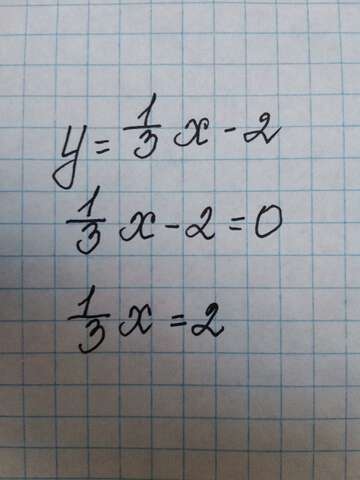 y = 1/3 x - 2
1/3 x - 2 = 0
1/3 x = 2